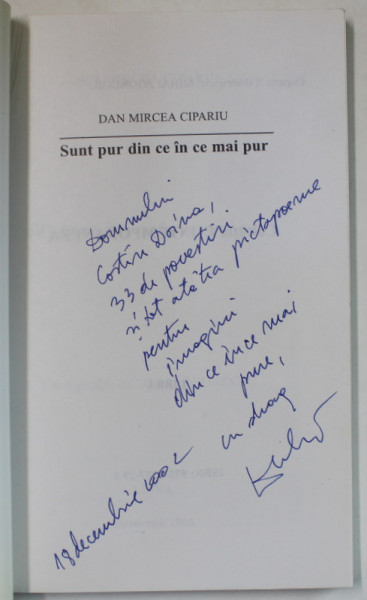 DAN MIRCEA CIPARIU
Sunt pur din ce în ce mai pur
Domnului
Costin Doina,
33 de povestiri
și tot atâtea pictopoeme
pentru
imagini
din ce în ce mai
pure,
cu drag
18 decembrie 2002